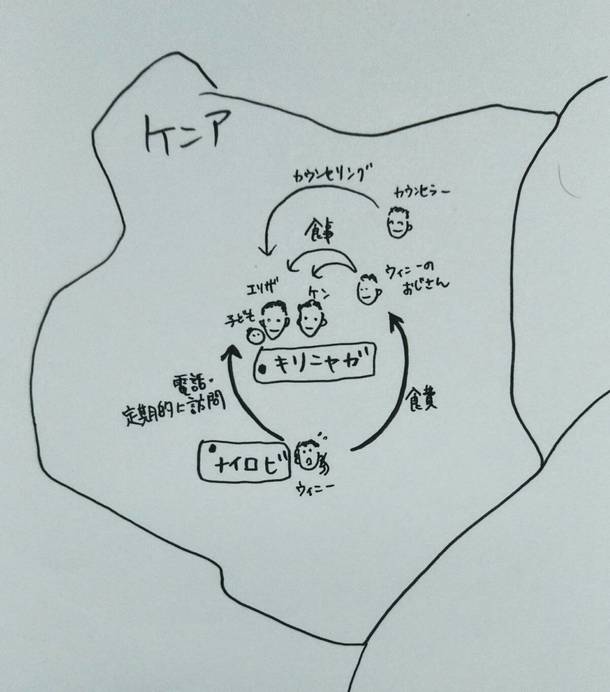 ケニア
カウンセリング
カウンセラー
食事
ウィニーの
おじさん
エリザ
ケン
子ども
キリニャガ
電話・
定期的に訪問
食費
ナイロビ
ウィニー